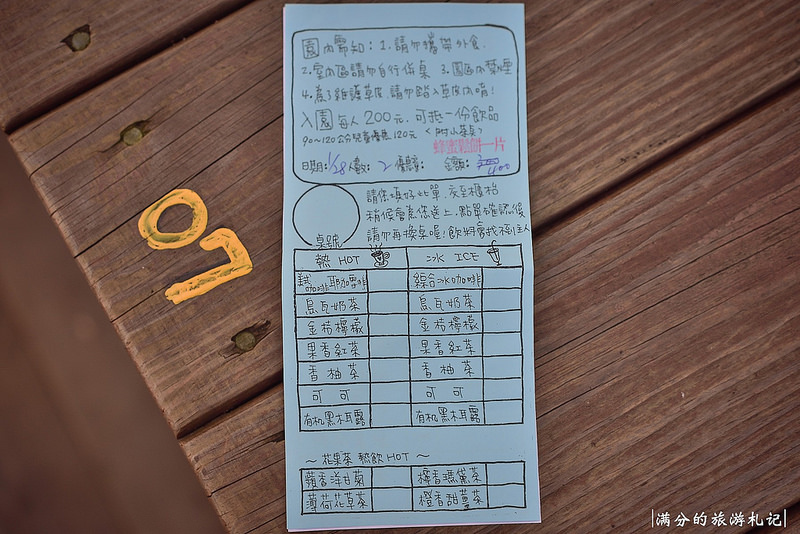 園內需知：1.請勿攜帶外食.
2.室內區請勿自行併桌 3.園區內禁煙
4.為了維護草皮,請勿踏入草皮內唷!
入園每人200元.可抵一份飲品
90~120公分兒童優惠120元
蜂蜜鬆餅一片
日期:1/28人數:2 優惠: 金額: 400
請您填好此單.交至櫃枱
稍候會為您送上.點單確認後
請勿再換桌喔!飲料會找不到主人
桌號
熱 HOT 冰 ICE
咖啡耶加雪啡 綜合冰咖啡
烏瓦奶茶 烏瓦奶茶
金桔檸檬 金桔檸檬
果香紅茶 果香紅茶
香柚茶 香柚茶
可可 可可
有机黑木耳露 有机黑木耳露
~花果茶 熱飲 HOT~
蘋香洋甘菊 檸香瑪黛茶
薄荷花草茶 橙香甜薑茶
|满分的旅游札记|